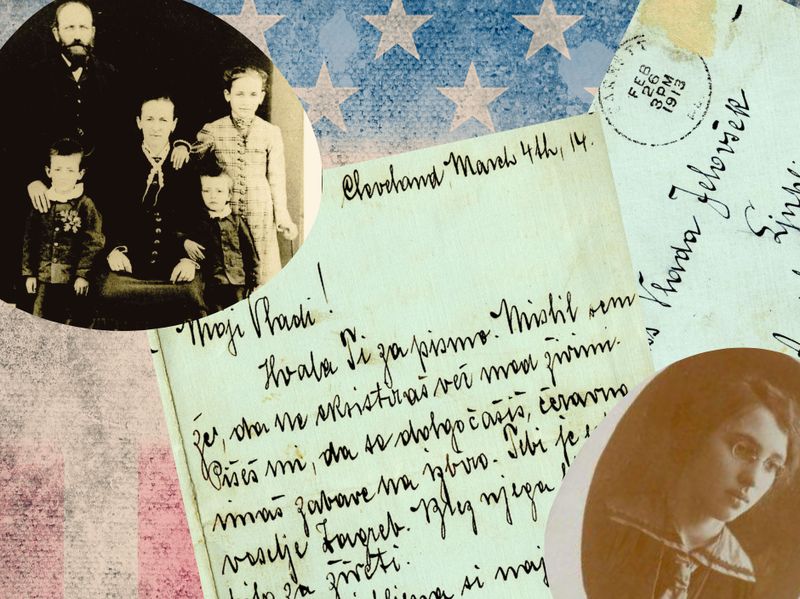 Cleveland, March 4th, 14.
Moji Vladi!
Hvala Ti za pismo. Mislil sem
že, da ne eksistiraš več med živimi.
Pišeš mi, da se dolgočasiš, čeravno
imaš zabave na izbiro. Tebi je
veselje Zagreb. Brez njega
bilo za živeti.
si naj
FEB
26
3PM
1913
Vlada Jelovšek